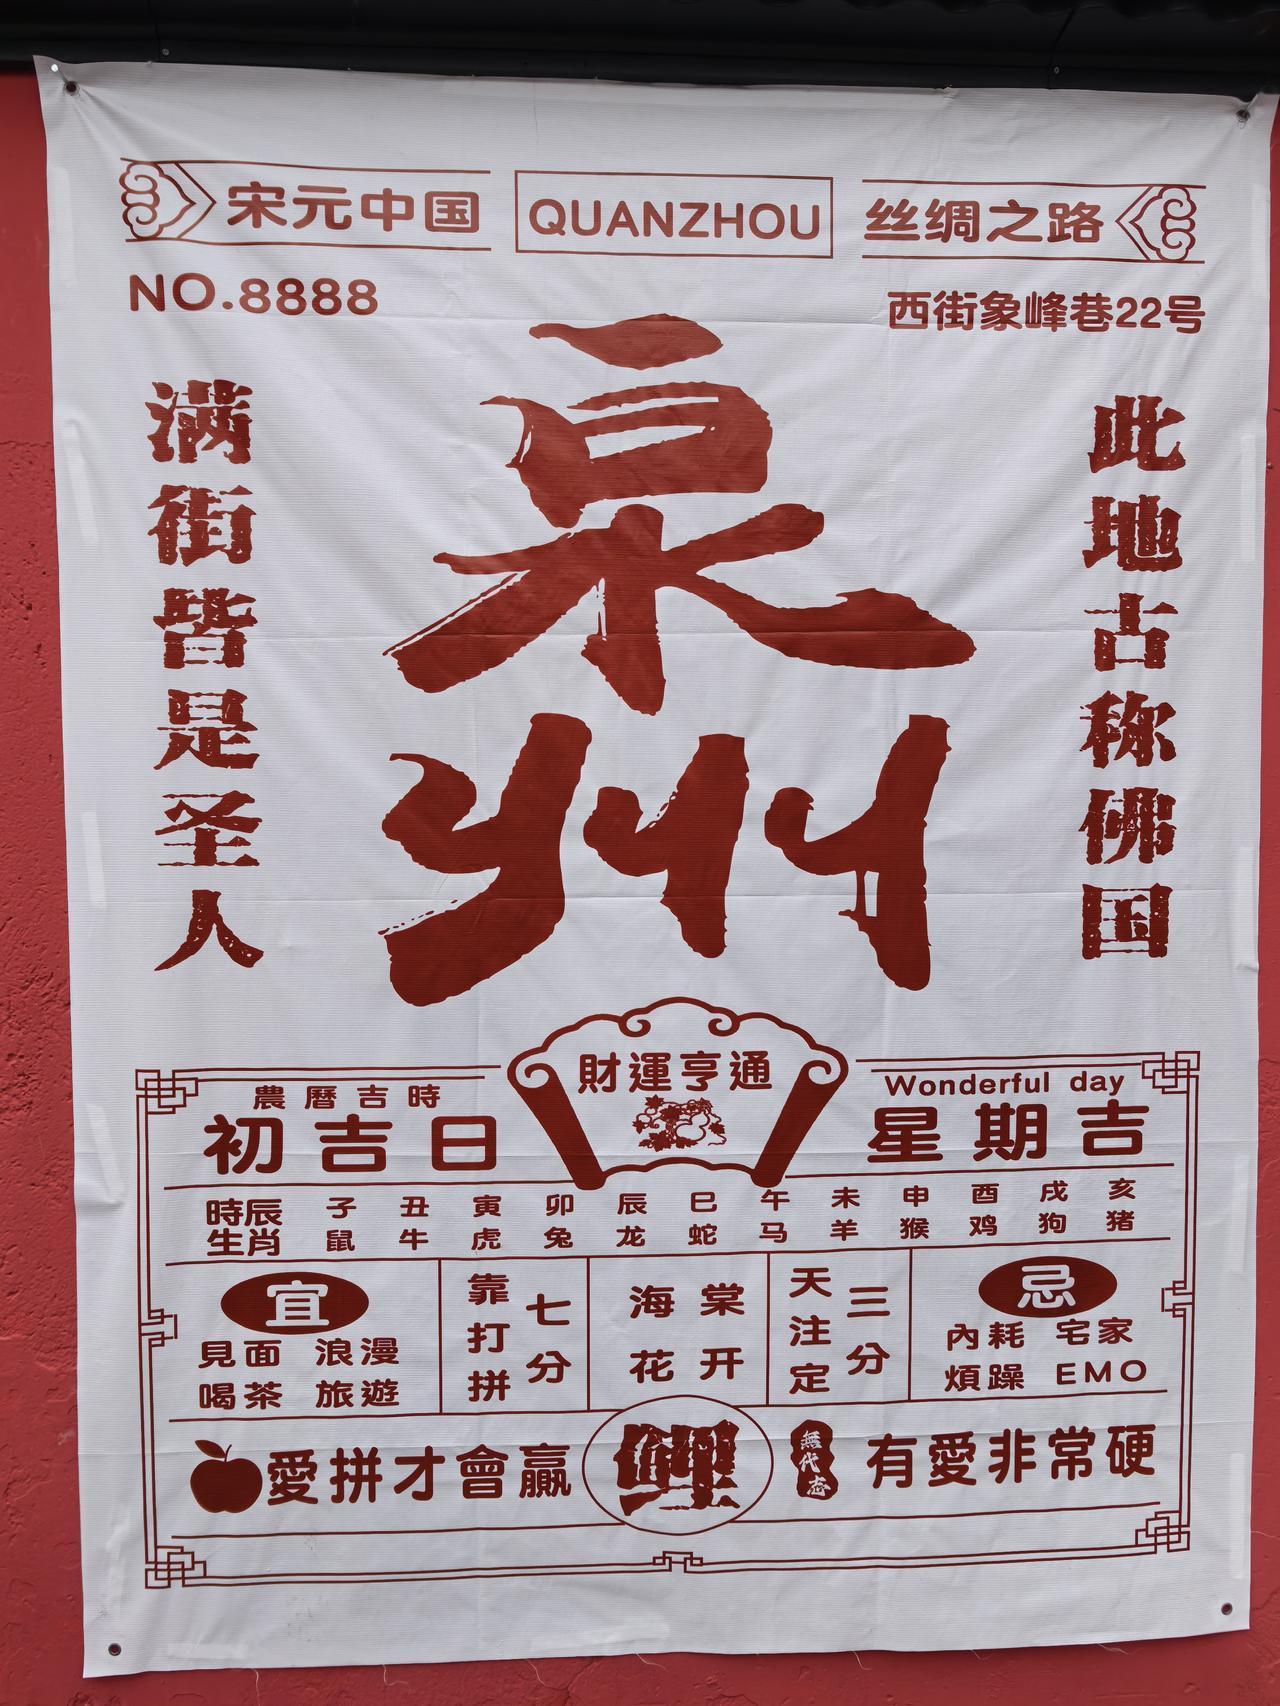 宋元中国 QUANZHOU 丝绸之路
NO.8888 西街象峰巷22号
泉州
此地古称佛国
满街皆是圣人
財運亨通
農曆吉時
初吉日
Wonderful day
星期吉
時辰 子 丑 寅 卯 辰 巳 午 未 申 酉 戌 亥
生肖 鼠 牛 虎 兔 龙 蛇 马 羊 猴 鸡 狗 猪
宜
見面 浪漫
喝茶 旅遊
七分
靠打拼
海棠
花开
三分
天注定
忌
內耗 宅家
煩躁 EMO
愛拼才會贏
無代志
有愛非常硬